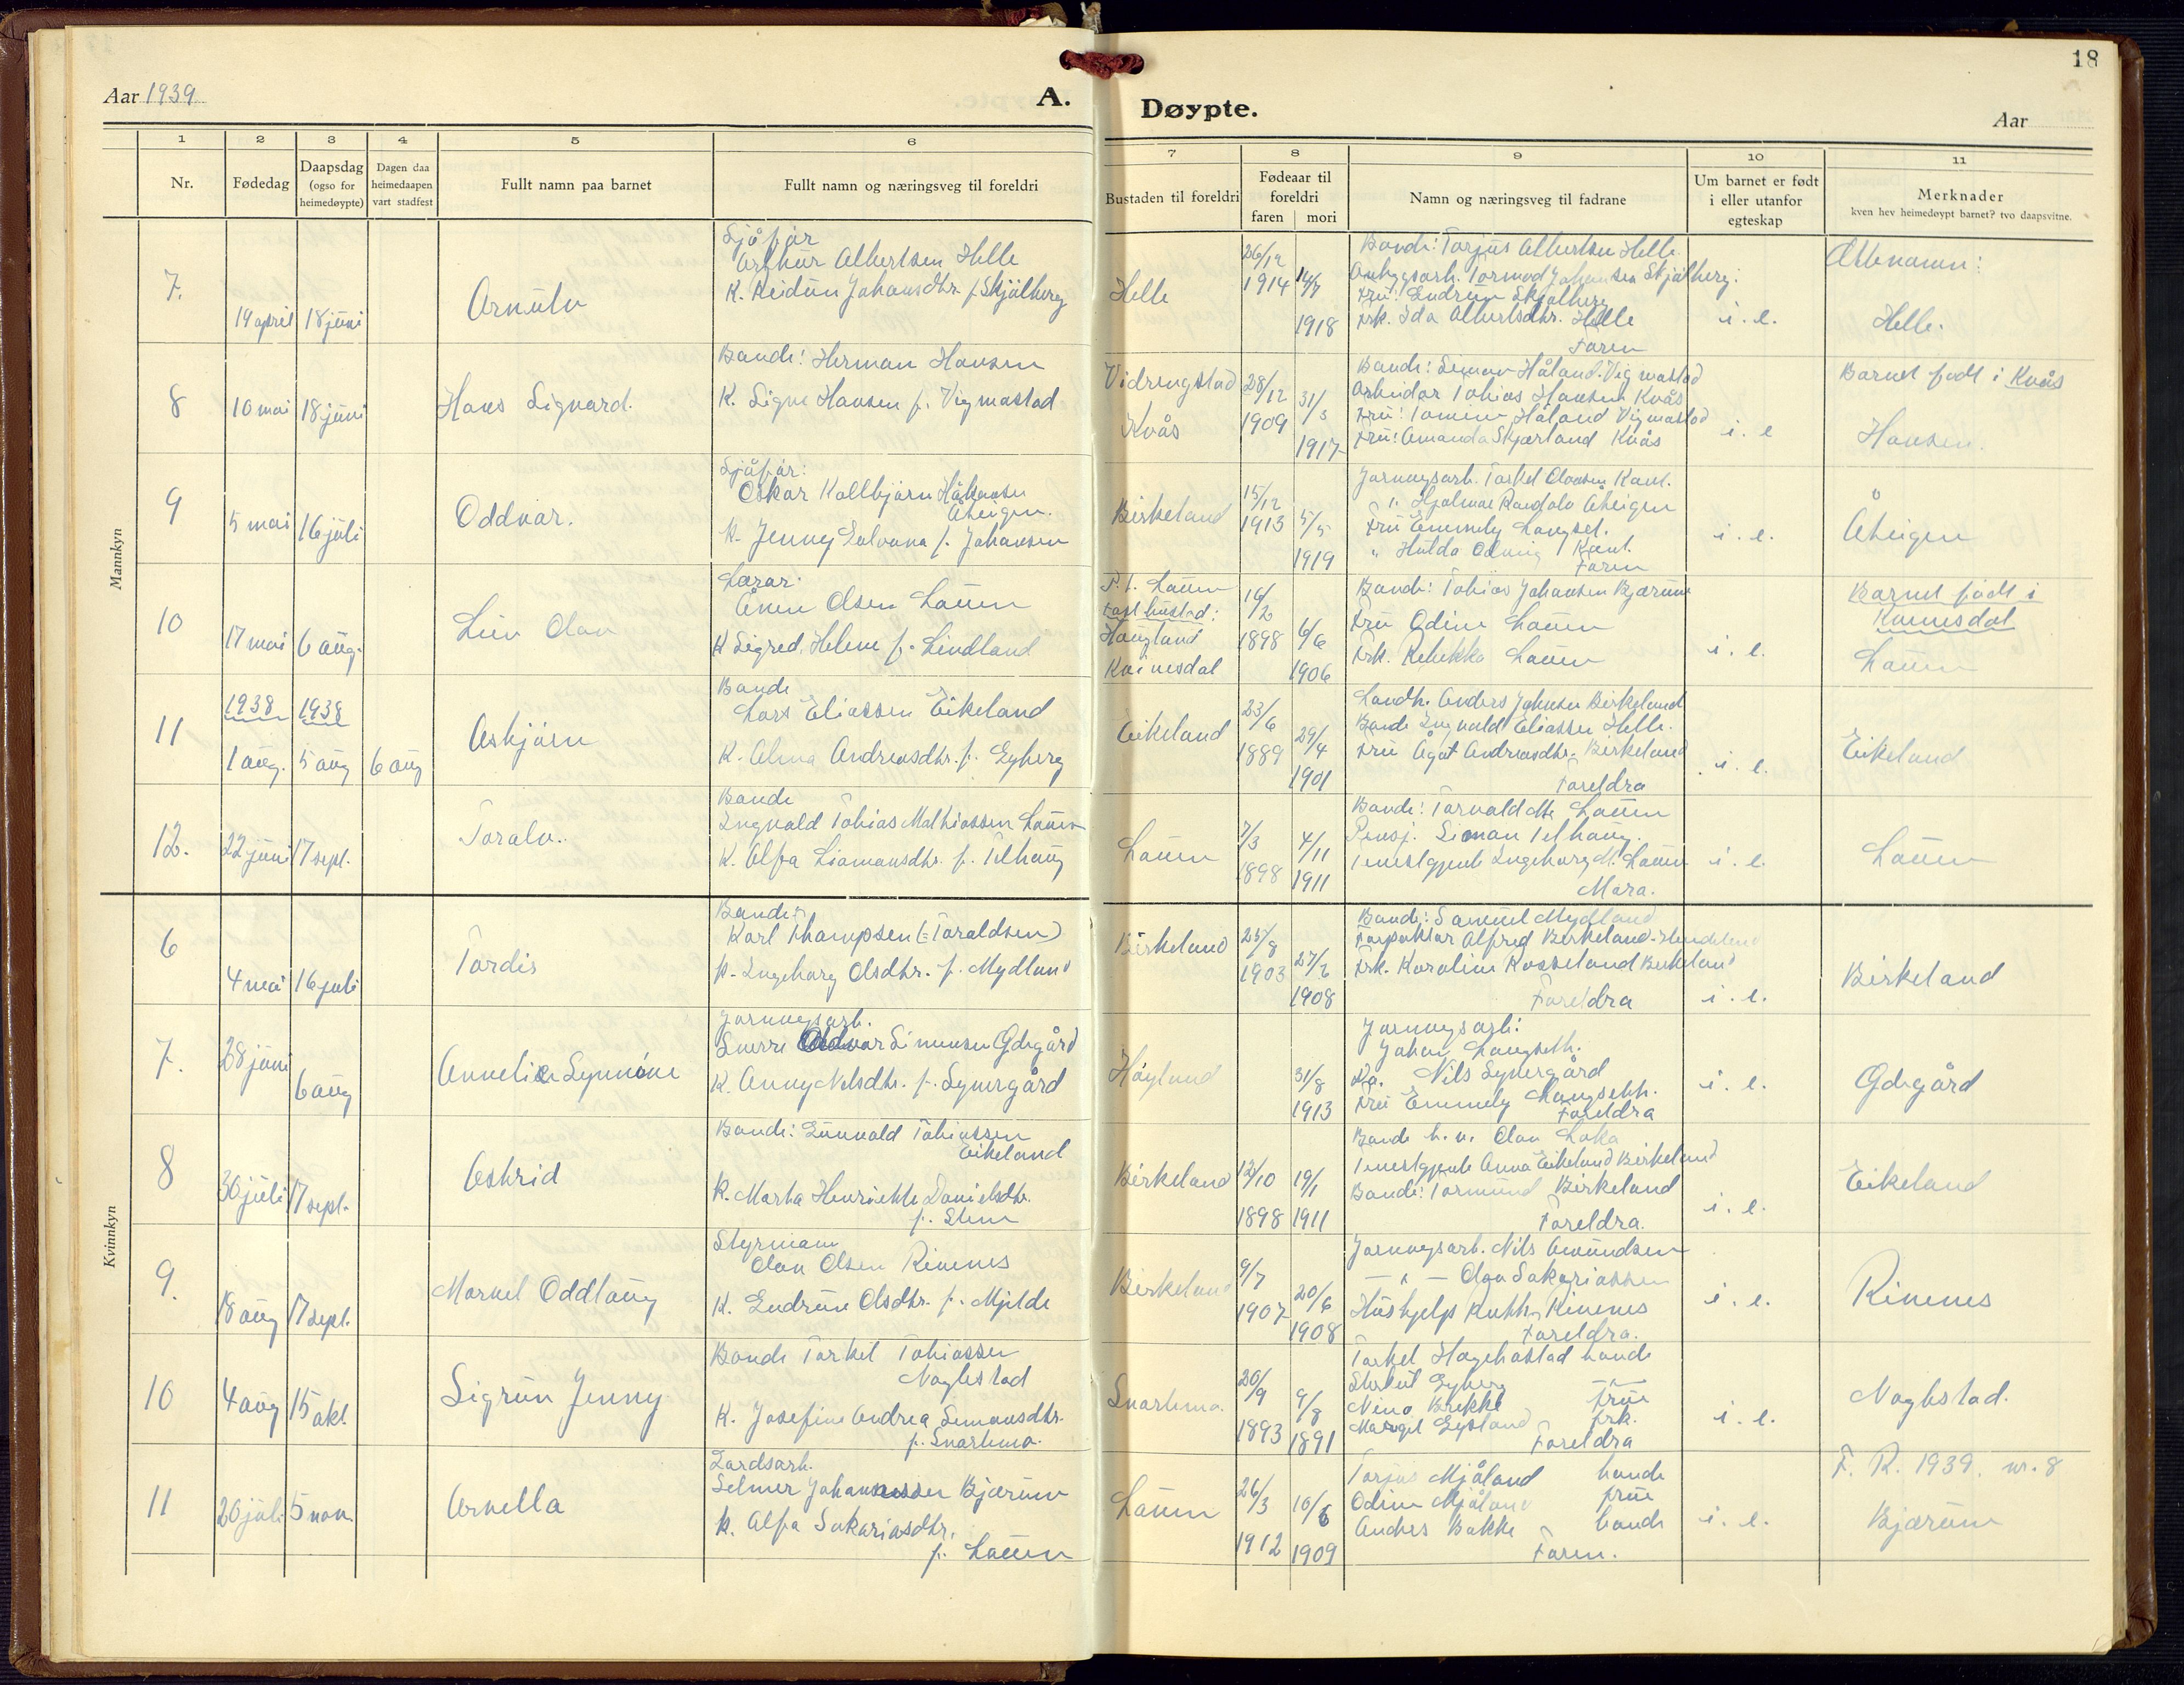 18
Aar 1939
A.
Døypte.
Aar
1 2 3 4 5 6 7 8 9 10 11
Nr.
Fødedag
Daapsdag (ogso for heimedøypte)
Dagen daa heimedaapen vart stadfest
Fullt namn paa barnet
Fullt namn og næringsveg til foreldri
Bustaden til foreldri
Fødeaar til foreldri
faren mori
Namn og næringsveg til fadrane
Um barnet er født i eller utanfor egteskap
Merknader
kven hev heimedøypt barnet? tvo daapsvitne.
Mannkyn
7.
19 april
18 juni
Arnulv
Sjåfør
Arthur Albertsen Helle
K. Reidun Johansdtr. f. Skjølberg
Helle
26/12 1914
14/7 1918
Bonde: Torjus Albertsen Helle
Anleggsarb. Tormod Johansen Skjølberg:
Fru: Gudrun Skjølberg
Frk. Ida Albertsdtr. Helle
Faren
i. e.
Ættenamn:
Helle.
8
10 mai
18 juni
Hans Sigvard.
Bonde: Herman Hansen
K. Signe Hansen f. Vigmostad
Vidringstad
Kvås
28/12 1909
31/3 1917
Bonde: Simon Håland. Vigmostad
Arbeidar Tobias Hansen Kvås
Fru: Tomine Håland Vigmostad
Fru: Amanda Skjærland Kvås
i. e
Barnet født i Kvås
Hansen.
9
5 mai
16 juli
Oddvar.
Sjåfør:
Oskar Kallbjørn Håkonsen
Åheigen.
K. Jenny Galvana f. Johansen
Birkeland
15/12 1913
5/5 1919
Jarnvegsarb. Torkel Olausen
" Hjalmar Randolv Åheigen
Fru Emmely Langset.
" Hulda
Faren
i. e.
Åheigen
10
17 mai
6 aug.
Liv Olav
Lærar.
Ånen Olsen Lauen
K Sigred Helene f. Lindland
P. t. Lauen
Fast bustad:
Haugland
Kvinesdal
1898
6/6 1906
Bonde: Tobias Johansen Bjærum
Fru Odine Lauen
Frk. Rebekka Lauen
i. e.
Barnet født i
Kvinesdal
Lauen
11
1938
1 aug.
1938
5 aug
6 aug
Asbjørn
Bonde
Lars Eliassen Eikeland
K. Alma Andreasdtr. f. Eyberg
Eikeland
23/6 1889
29/4 1901
Landh. Anders Johnsen Birkeland
Bonde Ingvald Eliassen Helle.
Fru Ågot Andreasdtr. Birkeland
Foreldra
i. e.
Eikeland
12.
22 juni
17 sept.
Toralv.
Bonde
Ingvald Tobias Mathiassen Lauen
K. Alfa Simonsdtr. f. Telhaug
Lauen
7/3 1898
4/11 1911
Bonde: Torvald Lauen
Pensj. Simon Telhaug.
Tenestgjente Ingeborg M. Lauen
Mora.
i. e.
Lauen
Kvinnkyn
6
4 mai
16 juli
Tordis
Bonde:
Karl Thompsen (= Toraldsen)
K. Ingeborg Olsdtr. f. Mydland
Birkeland
25/8 1903
27/2 1908
Bonde: Samuel Mydland
Forpaktar Alfred Birkeland
Frk. Karoline Rosseland Birkeland
Foreldra
i. e.
Birkeland
7.
28 juni
6 aug
Annelise Synnøve
Jarnvegsarb.
Sverre Oddvar Simensen Ødegård
K. Anny Nilsdtr. f. Synergård
Høyland
31/8 1913
Jarnvegsarb:
Johan Langseth.
Ka. Nils Synergård
Fru Emmely Langseth.
Foreldra
i. e.
Ødegård
8
30 juli
17 sept.
Astrid
Bonde: Gunvald Tobiassen
Eikeland
K. Marta Henriette Danielsdtr.
f. Stene
Birkeland
12/10 1898
19/1 1911
Bonde h. v. Olav Loka
Tenestgjente Anna Eikeland Birkeland
Bonde: Tormund Birkeland
Foreldra.
i. e.
Eikeland
9.
18 aug
17 sept.
Marnel Oddlaug
Styrmann
Olav Olsen Rinenes
K. Gudrun Olsdtr. f. Mjelde
Birkeland
9/7 1907
20/6 1908
Jarnvegsarb. Nils Amundsen
— " — Olav Sakariassen
Hushjelp Ruth Rinenes
Foreldra.
i. e.
Rinenes
10
4 aug
15 okt.
Sigrun Jenny
Bonde Torkel Tobiassen
Naglestad
K. Josefine Andrea Simonsdtr.
f. Snartemo.
Snartemo.
20/9 1893
9/8 1891
Torkel Hægebostad bonde
Eyberg
Nina Brekke frue
Margit Eysland frk.
Foreldra
i. e.
Naglestad.
11
20 juli
5 nov.
Arnella
Gardsarb.
Selmer Johannessen Bjærum
K. Alfa Sakariasdtr.
f. Lauen
Lauen
26/3 1912
10/6 1909
Torjus Mjåland bonde
Odine Mjåland frue
Anders Bakke bonde
Faren.
i. e.
F. R. 1939. nr. 8
Bjærum